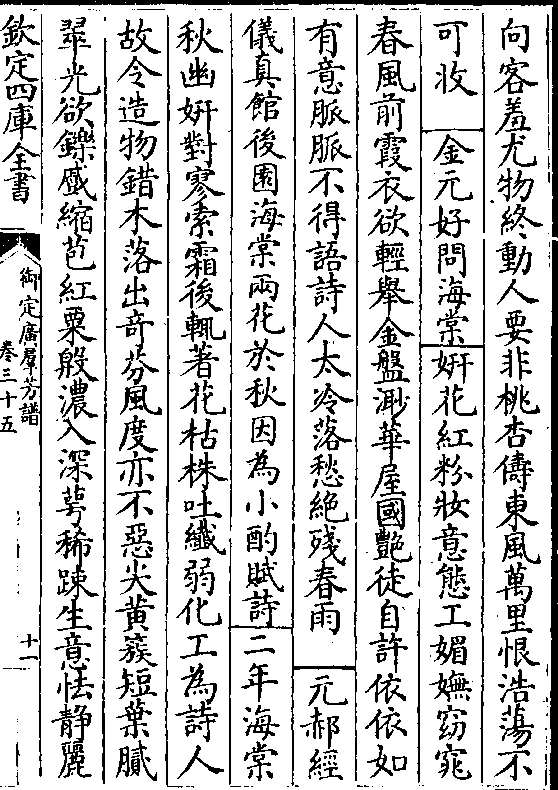 向客羞尤物終動人要非桃杏儔東風萬里恨浩蕩不
可收　金元好問海棠妍花紅粉妝意態工媚嫵窈窕
春風前霞衣欲輕舉金盤渺華屋國艷徒自許依依如
有意脈脈不得語詩人太冷落愁絕殘春雨　元郝經
儀真館後園海棠兩花於秋因為小酌賦詩二年海棠
秋幽妍對寥索霜後輒著花枯株吐纖弱化工為詩人
故令造物錯木落出奇芬風度亦不惡尖黄簇短葉膩
翠光欲鑠戚縮苞紅粟般濃入深萼稀踈生意怯靜麗
欽定四庫全書
御定廣羣芳譜
卷三十五
十一